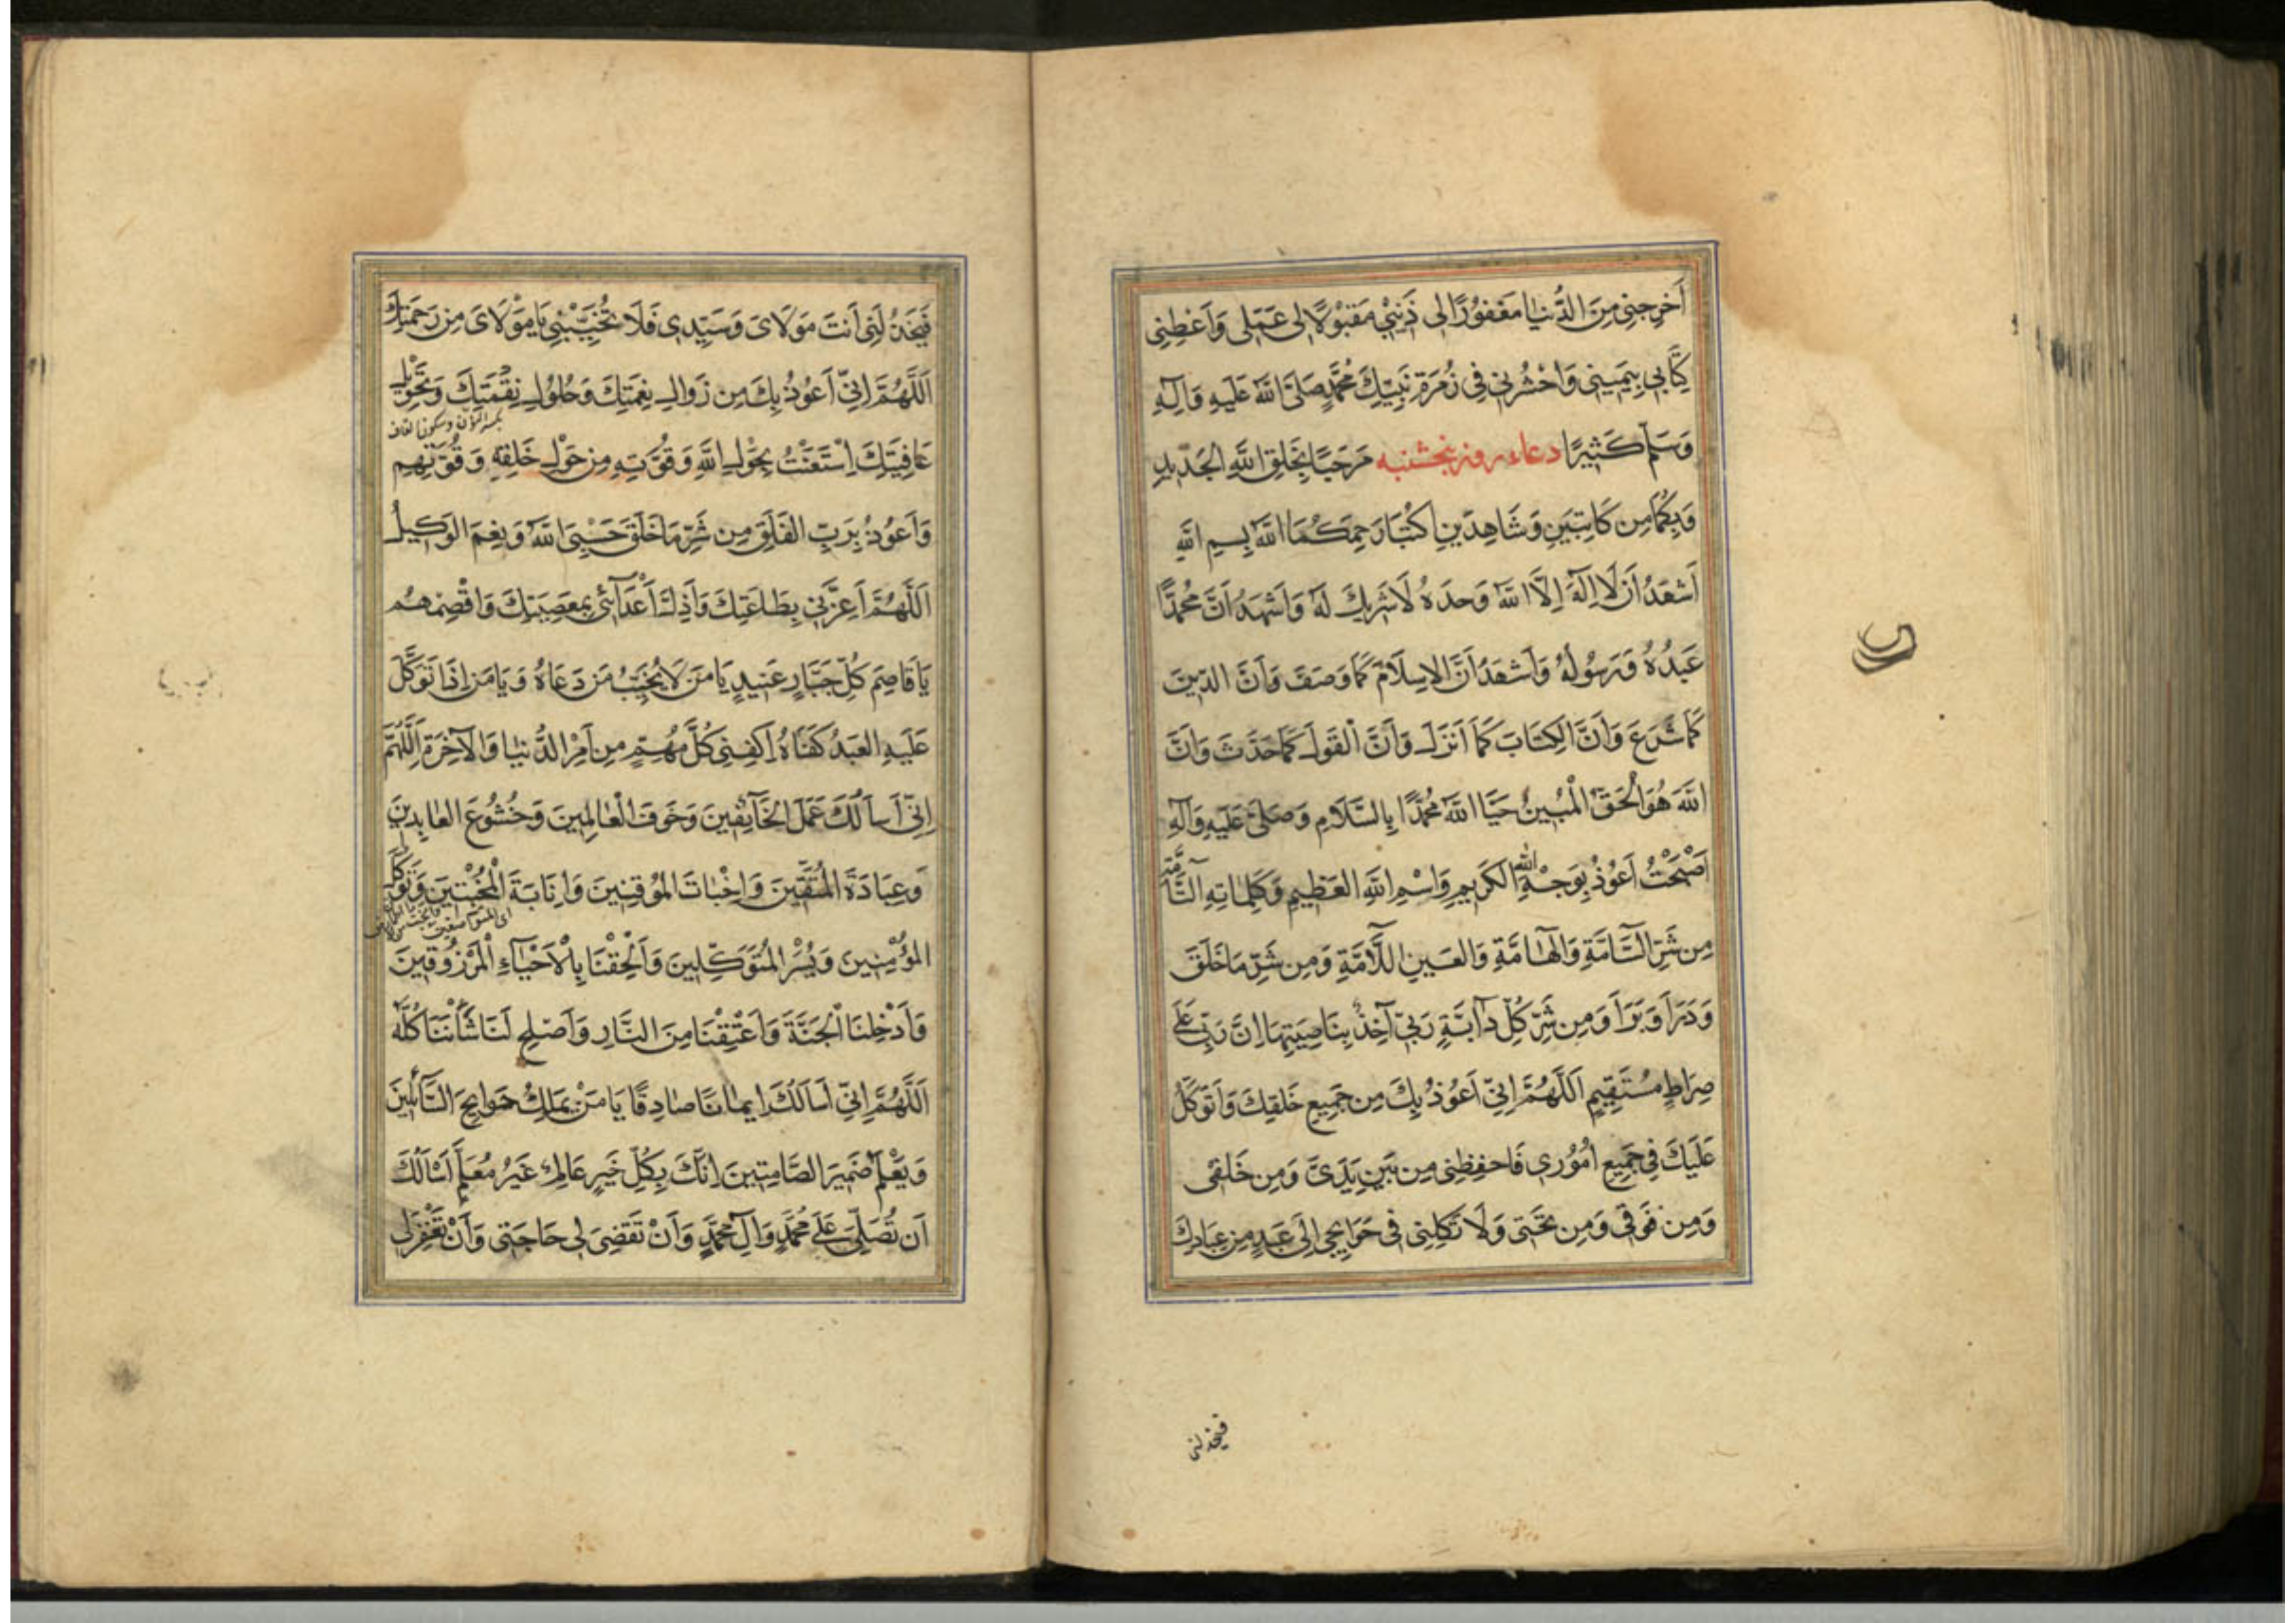 اَخرِجنِي مِنَ الدُّنيٰا مَغفوُرًا لِى ذَنبْي مَقبوْلًا لِى عَمَلِى وَاَعْطِنِى
كِتَابِي بِيَمِيننِى وَاحْشُرنِي فِى زُمرَةِ نَبِيّكَ مُحَمَّدٍ صَلَّى اللَّهُ عَلَيهِ وَآلِهِ
وَسَلَّم كَثيرًا دعاء روز پنجشنبه مَرحَبًا بِخَلقِ اللَّهِ الجَديدِ
وَبِكُمَا مِن كَاتِبَينِ وَشَاهِدَينِ اكتُبَا رَحِمَكُمَا اللَّهُ بِسمِ اللَّهِ
اَشهَدُ اَن لَا اِلَهَ اِلَّا اللَّهُ وَحدَهُ لَا شَرِيكَ لَهُ وَاَشهَدُ اَنَّ مُحَمَّدًا
عَبدُهُ وَرَسُولُهُ وَاَشهَدُ اَنَّ الاِسلَامَ كَمَا وَصَفَ وَاَنَّ الدّينَ
كَمَا شَرَعَ وَاَنَّ الكِتَابَ كَمَا اَنزَلَ وَاَنَّ القَولَ كَمَا حَدَّثَ وَاَنَّ
اللَّهَ هُوَ الْحَقُّ الْمُبينُ حَيَّا اللَّهُ مُحَمَّدًا بِالسَّلَامِ وَصَلَّى عَلَيهِ وَآلِهِ
اَصْبَحْتُ اَعُوْذُ بِوَجْهِ اللهِ الكَرِيمِ وَاسْمِ اللَّهِ العَظِيمِ وَكَلِمٰاتِهِ التَّآمَّةِ
مِن شَرِّ السَّآمَّةِ وَالهٰآمَّةِ وَالعَينِ اللَّآمَّةِ وَمِن شَرِّ مَا خَلَقَ
وَذَرَاَ وَبَرَاَ وَمِن شَرِّ كُلِّ دآبَّةٍ رَبّي آخِذٌ بِنَاصِيَتِهَا اِنَّ رَبّي عَلَى
صِرَاطٍ مُستَقِيمٍ اَللَّهُمَّ اِنّي اَعُوْذُ بِكَ مِن جَمِيعِ خَلقِكَ وَاَتَوَكَّلُ
عَلَيكَ فِي جَمِيعِ اُمُوْرِي فَاحفِظنِى مِن بَينِ يَدَىَّ وَمِن خَلفِى
وَمِن فَوقِي وَمِن تَحتِى وَلَا تَكِلنِى فِى حَوَايِجِى اِلَى عَبدٍ مِن عِبَادِكَ
فيخذلنى
فَيَخذُلَنِى اَنتَ مَولَاىَ وَسَيّدِى فَلَا تُخَيِّبْنِي يَا مَوْلَاىَ مِن رَحمَتِكَ
اَللَّهُمَّ اِنّي اَعُوْذُ بِكَ مِن زَوالِ نِعمَتِكَ وَحُلوُلِ نِقْمَتِكَ وَتَحْوِيلِ
بكسر النون وسكون القاف
عَافِيَتِكَ اِسْتَعَنْتُ بِحَوْلِ اللَّهِ وَقُوَّتِهِ مِن حَوْلِ خَلقِهِ وَقُوَّتِهِم
وَاَعوُذُ بِرَبِّ الفَلَقِ مِن شَرِّ مَا خَلَقَ حَسْبِىَ اللَّهُ وَنِعمَ الوَكِيلُ
اَللَّهُمَّ اَعِزَّنِي بِطَاعَتِكَ وَاَذِلَّ اَعْدَآئي بِمَعصِيَتِكَ وَاقْصِمْهُم
يَا قَاصِمَ كُلِّ جَبَّارٍ عَنيدٍ يَا مَن لَا يُخَيِّبُ مَن دَعَاهُ وَيَا مَن اِذَا تَوَكَّلَ
عَلَيهِ العَبدُ كَفَاهُ اِكفِنِي كُلَّ مُهِمٍّ مِن اَمرِ الدُّنيٰا وَالآخِرَةِ اَللَّهُمَّ
اِنّي اَسـاَلُكَ عَمَلَ الْخَآئِفينَ وَخَوفَ الْعٰالِمينَ وَخُشُوعَ العٰابِدينَ
وَعِبَادَةَ الْمُتَّقينَ وَاِخْبٰاتَ المُؤمِنينَ وَاِنَابَةَ الْمُخْبِتينَ وَتَوَكُّلَ
المُوْقِنِينَ وَيُسْرَ الْمُتَوَكِّلِينَ وَاَلْحِقْنَا بِالْاَحْيٰآءِ الْمَرْزُوقينَ
وَاَدْخِلنَا الْجَنَّةَ وَاَعْتِقْنَا مِنَ النَّارِ وَاَصلِح لَنَا شَأْنَنَا كُلَّهُ
اَللَّهُمَّ اِنّي اَسَالُكَ ايمٰانًا صٰادِقًا يَا مَنْ يَملِكُ حَوايِجَ السَّآئلينَ
وَيَعْلَمُ ضَميرَ الصَّامِتينَ اِنَّكَ بِكُلِّ خَيرٍ عَالِمٌ غَيرُ مُعَلَّمٍ اَسْالُكَ
اَن تُصَلِّىَ عَلَى مُحَمَّدٍ وَآلِ مُحَمَّدٍ وَاَنْ تَقضِىَ لِى حَاجَتِى وَاَنْ تَغْفِرَ لِى